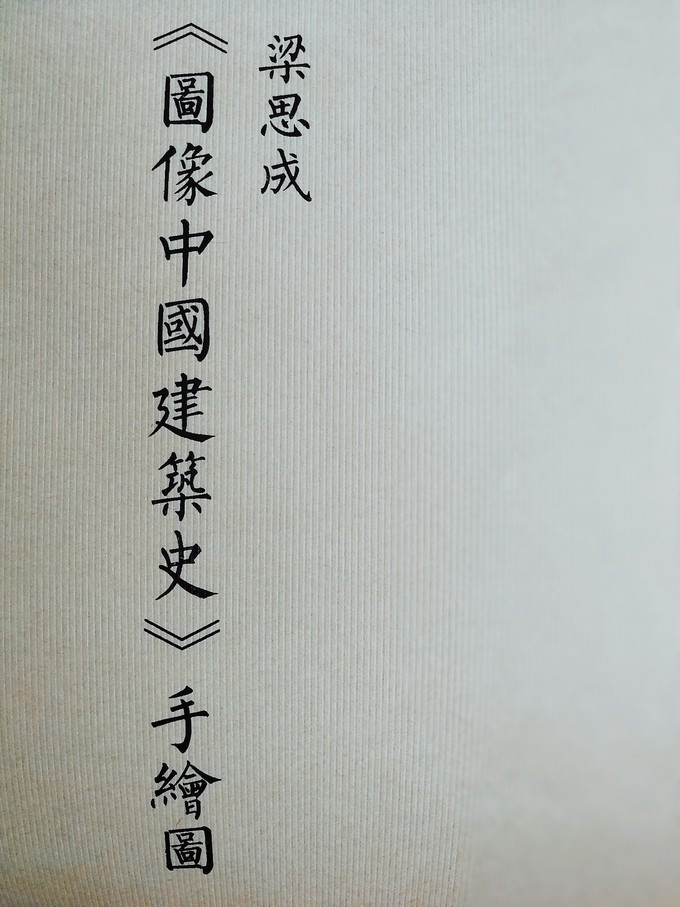 梁思成
《圖像中國建築史》手繪圖